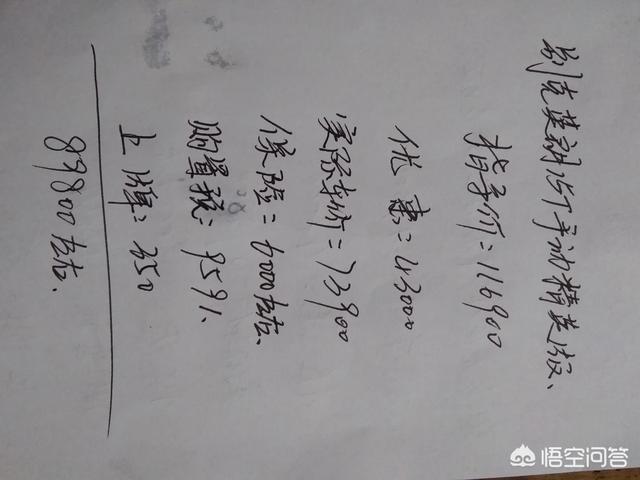 别克英朗15T手动精英版、
指导价=116900
优惠=43000
实际车价=73900
保险=6000左右、
购置税=9591、
上牌=350
89800左右、
悟空问答